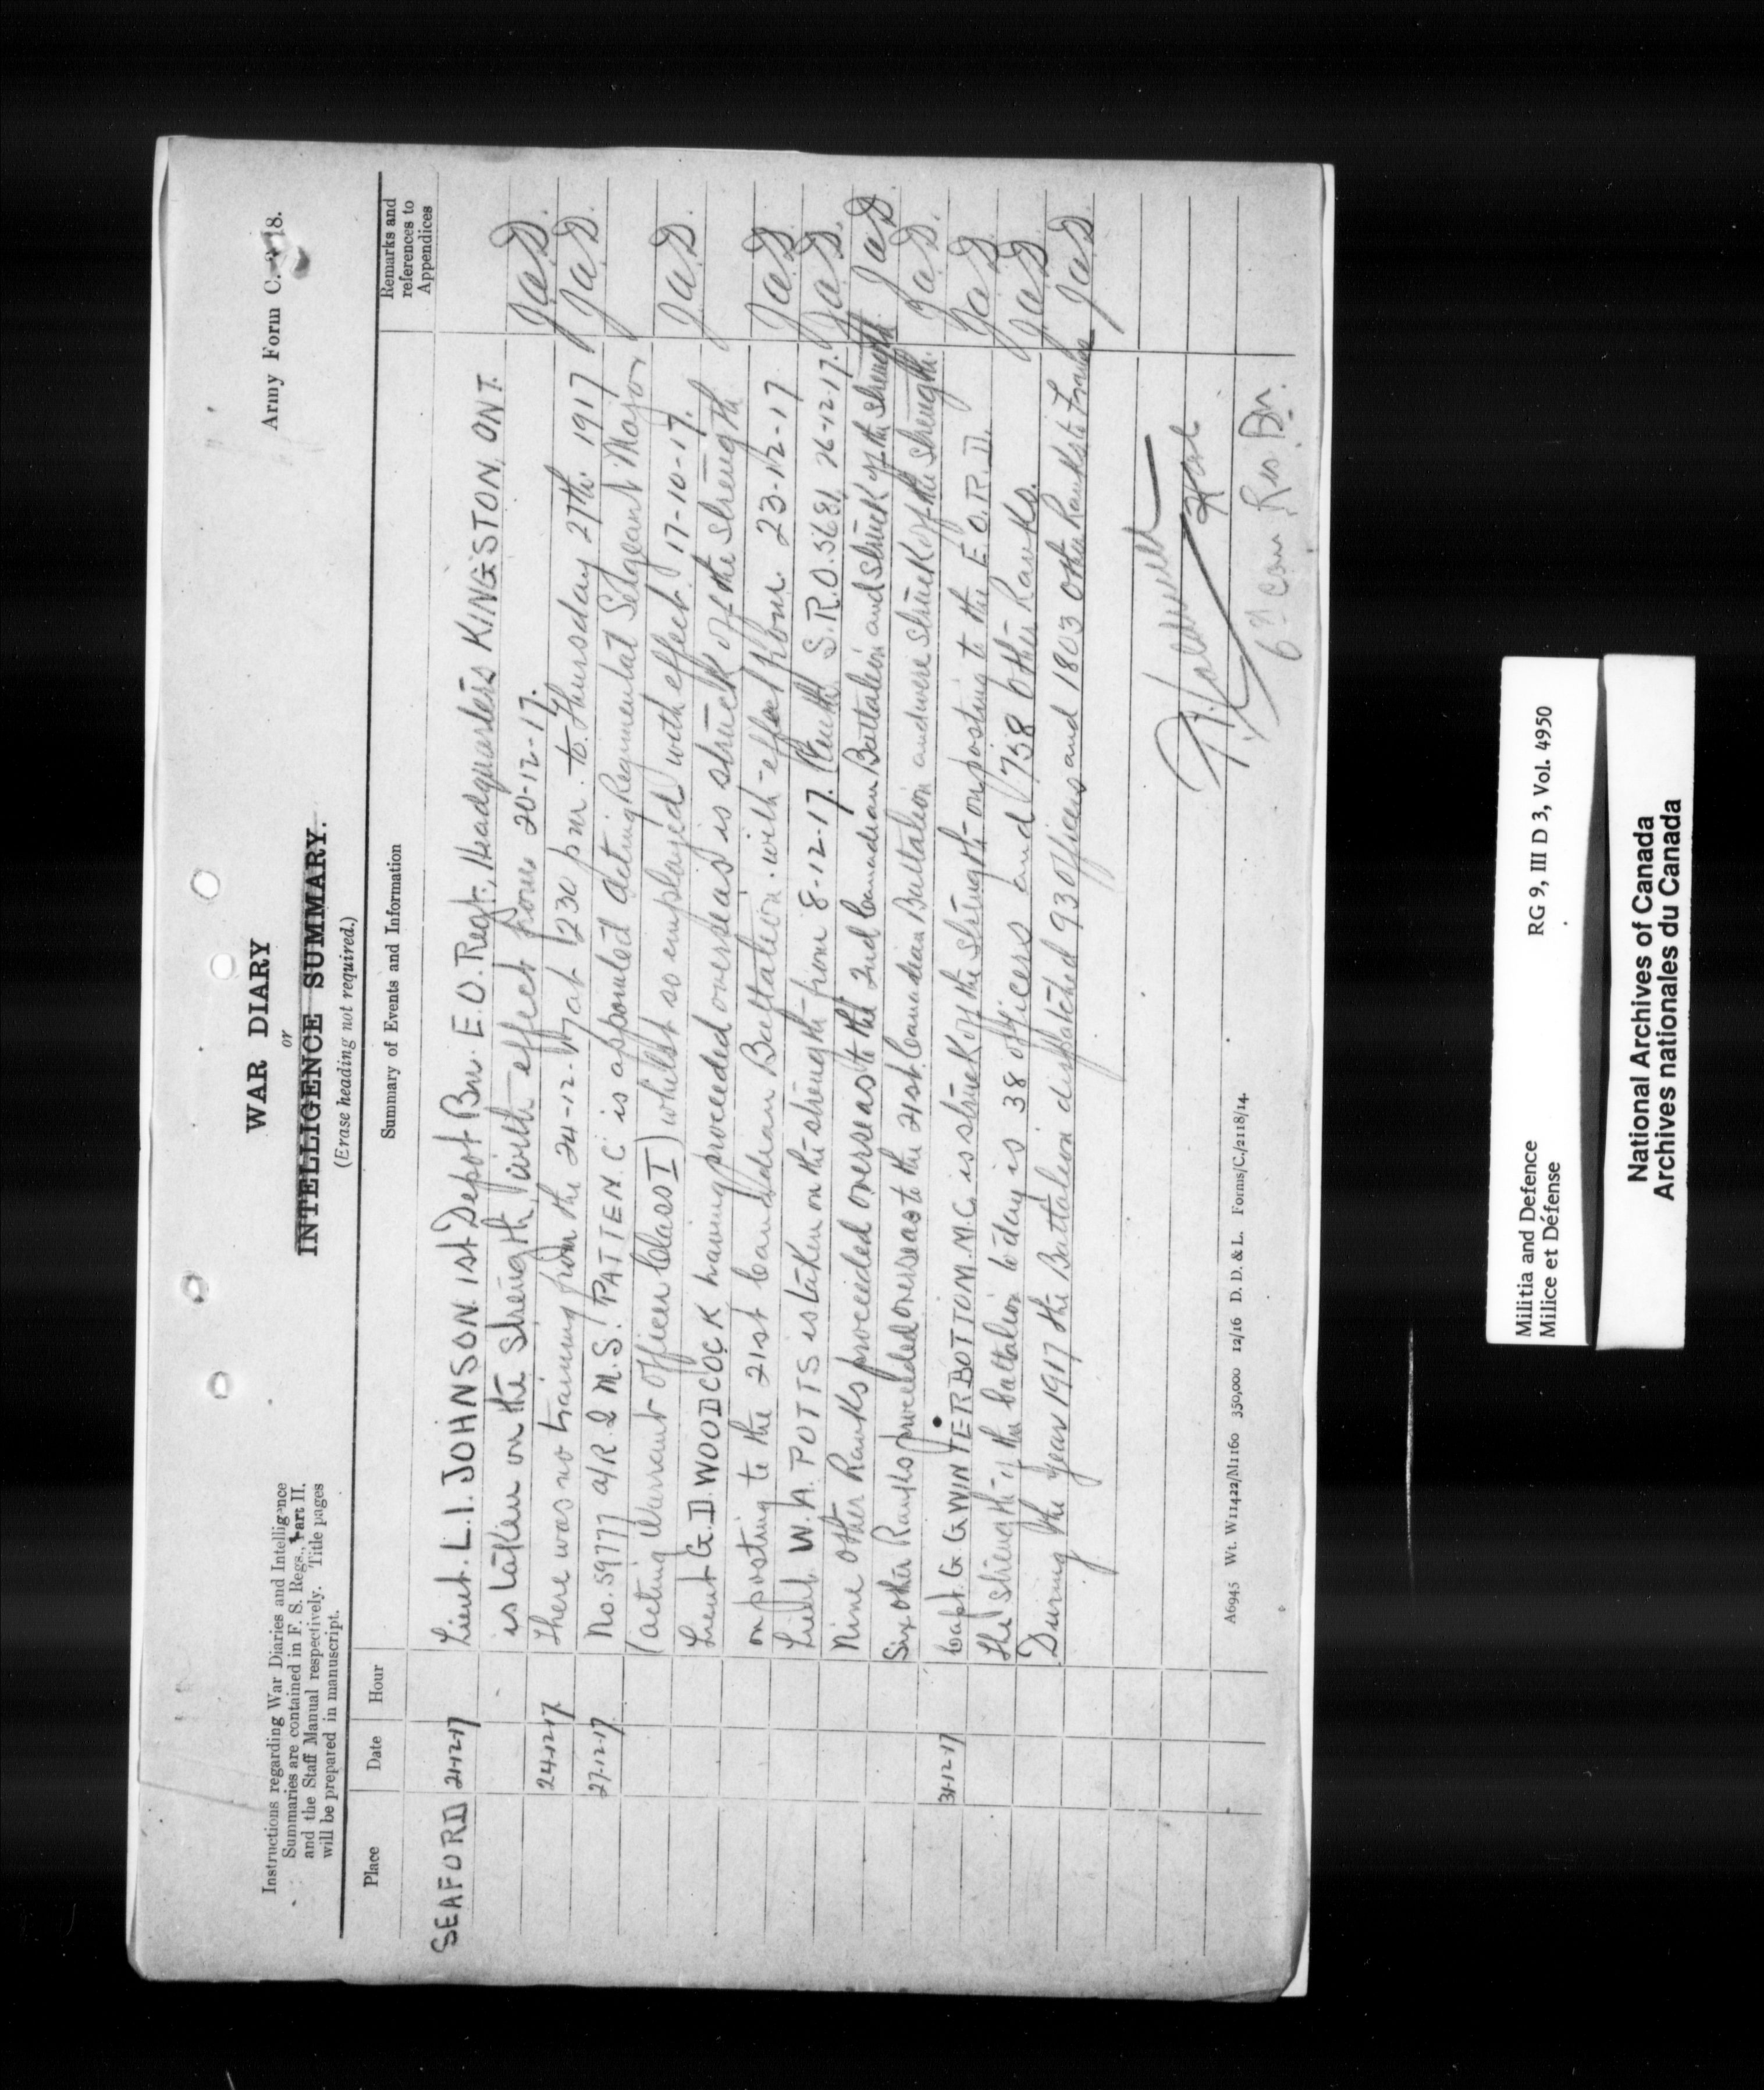 Army Form C. 2118.
WAR DIARY
or
INTELLIGENCE SUMMARY.
(Erase heading not required.)
Instructions regarding War Diaries and Intelligence
Summaries are contained in F. S. Regs., Part II.
and the Staff Manual respectively. Title pages
will be prepared in manuscript.
Place Date Hour Summary of Events and Information Remarks and references to Appendices
SEAFORD 21-12-17 Lieut. L.I. JOHNSON. 1st Depot Bn. E.O. Regt., Headquarters KINGSTON, ONT.
is taken on the strength with effect from 20-12-17. JaD.
24-12-17 There was no training from the 24-12-17 at 1230 pm. to Thursday 27th. 1917 JaD.
27-12-17 No. 59777 a/R.Q.M.S. PATTEN. C is appointed acting Regimental Sergeant Major
(acting Warrant Officer Class I) whilst so employed with effect 17-10-17. JaD.
Lieut G.D. WOODCOCK having proceeded overseas is struck off the strength
on posting to the 21st Canadian Battalion. with effect from. 23-12-17 JaD.
Lieut. W.A. POTTS is taken on the strength from 8-12-17. S.R.O. 3681. 26-12-17. JaD.
Nine other Ranks proceeded overseas to the 2nd Canadian Battalion and struck off the strength JaD
Six other Ranks proceeded overseas to the 21st. Canadian Battalion and were struck off the strength. JaD.
31-12-17 Capt. G. GWINTERBOTTOM. M.C. is struck off the strength on posting to the E.O.R.D. JaD
The strength of the battalion to day is 38 officers and 758 other Ranks. JaD
During the year 1917 the Battalion dispatched 93 officers and 1803 other Ranks to France JaD
6th Can Res Bn.
A6945 Wt. W11422/M1160 350,000 12/16 D. D. & L. Forms/C./2118/14.
Militia and Defence RG 9, III D 3, Vol. 4950
Milice et Défense
National Archives of Canada
Archives nationales du Canada